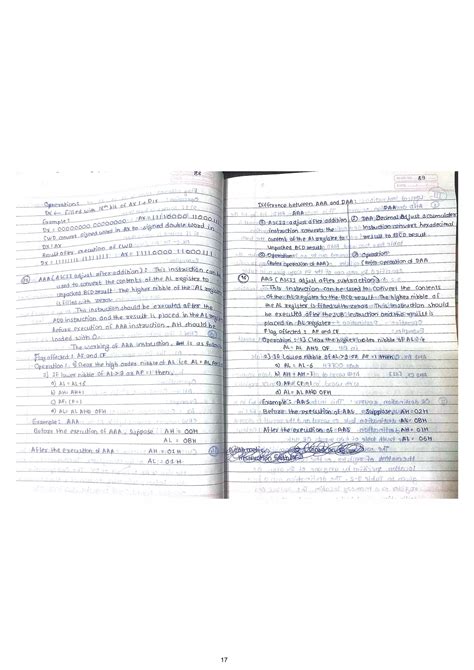 88
Operation:
DX ← filled with 16th bit of AX i.e D15
Example:
DX = 00000000 00000000 AX = 11110000 11000111
CWD convert signed word in AX to signed double word in
DX:AX
Result after execution of CWD
DX = 11111111 11111111 AX = 11110000 11000111
AAA (ASCII adjust after addition): This instruction can be
used to convert the contents of the AL register to
unpacked BCD result. The higher nibble of the AL register
is filled with zeros.
The instruction should be executed after the
ADD instruction and the result is placed in the AL register
Before execution of AAA instruction, AH should be
loaded with 0.
The working of AAA instruction is as follows
Flag affected: AF and CF
Operation: 1) Clear the high order nibble of AL
2) If lower nibble of AL>9 or AF=1 then,
a) AL = AL+6
b) AH = AH+1
c) AF, CF=1
d) AL = AL AND 0FH
Example: AAA
Before the execution of AAA, suppose AH = 00H
AL = 0BH
After the execution of AAA AH = 01H
AL = 01H
89
Difference between AAA and DAA:
AAA DAA
① ASCII adjust after addition ① Decimal Adjust accumulator
instruction converts the instruction converts hexadecimal
content of the AL register to result to BCD result.
unpacked BCD result
② Operation: ② Operation:
(Write operation of AAA) (Write operation of DAA)
AAS (ASCII adjust after subtraction):
This instruction can be used to convert the contents
of the AL register to the BCD result. The higher nibble of
the AL register is filled with zeros. This instruction should
be executed after the SUB instruction and the result is
placed in AL register.
Flag affected: AF and CF
Operation: 1) Clear the higher order nibble of AL
AL = AL AND 0F
2) If lower nibble of AL>9 or AF=1 then,
a) AL = AL-6
b) AH = AH-1
c) AF = CF=1
d) AL = AL AND 0FH
Example: AAS
Before the execution of AAS, suppose AH = 02H
AL = 0BH
After the execution of AAS AH = 01H
AL = 05H
17